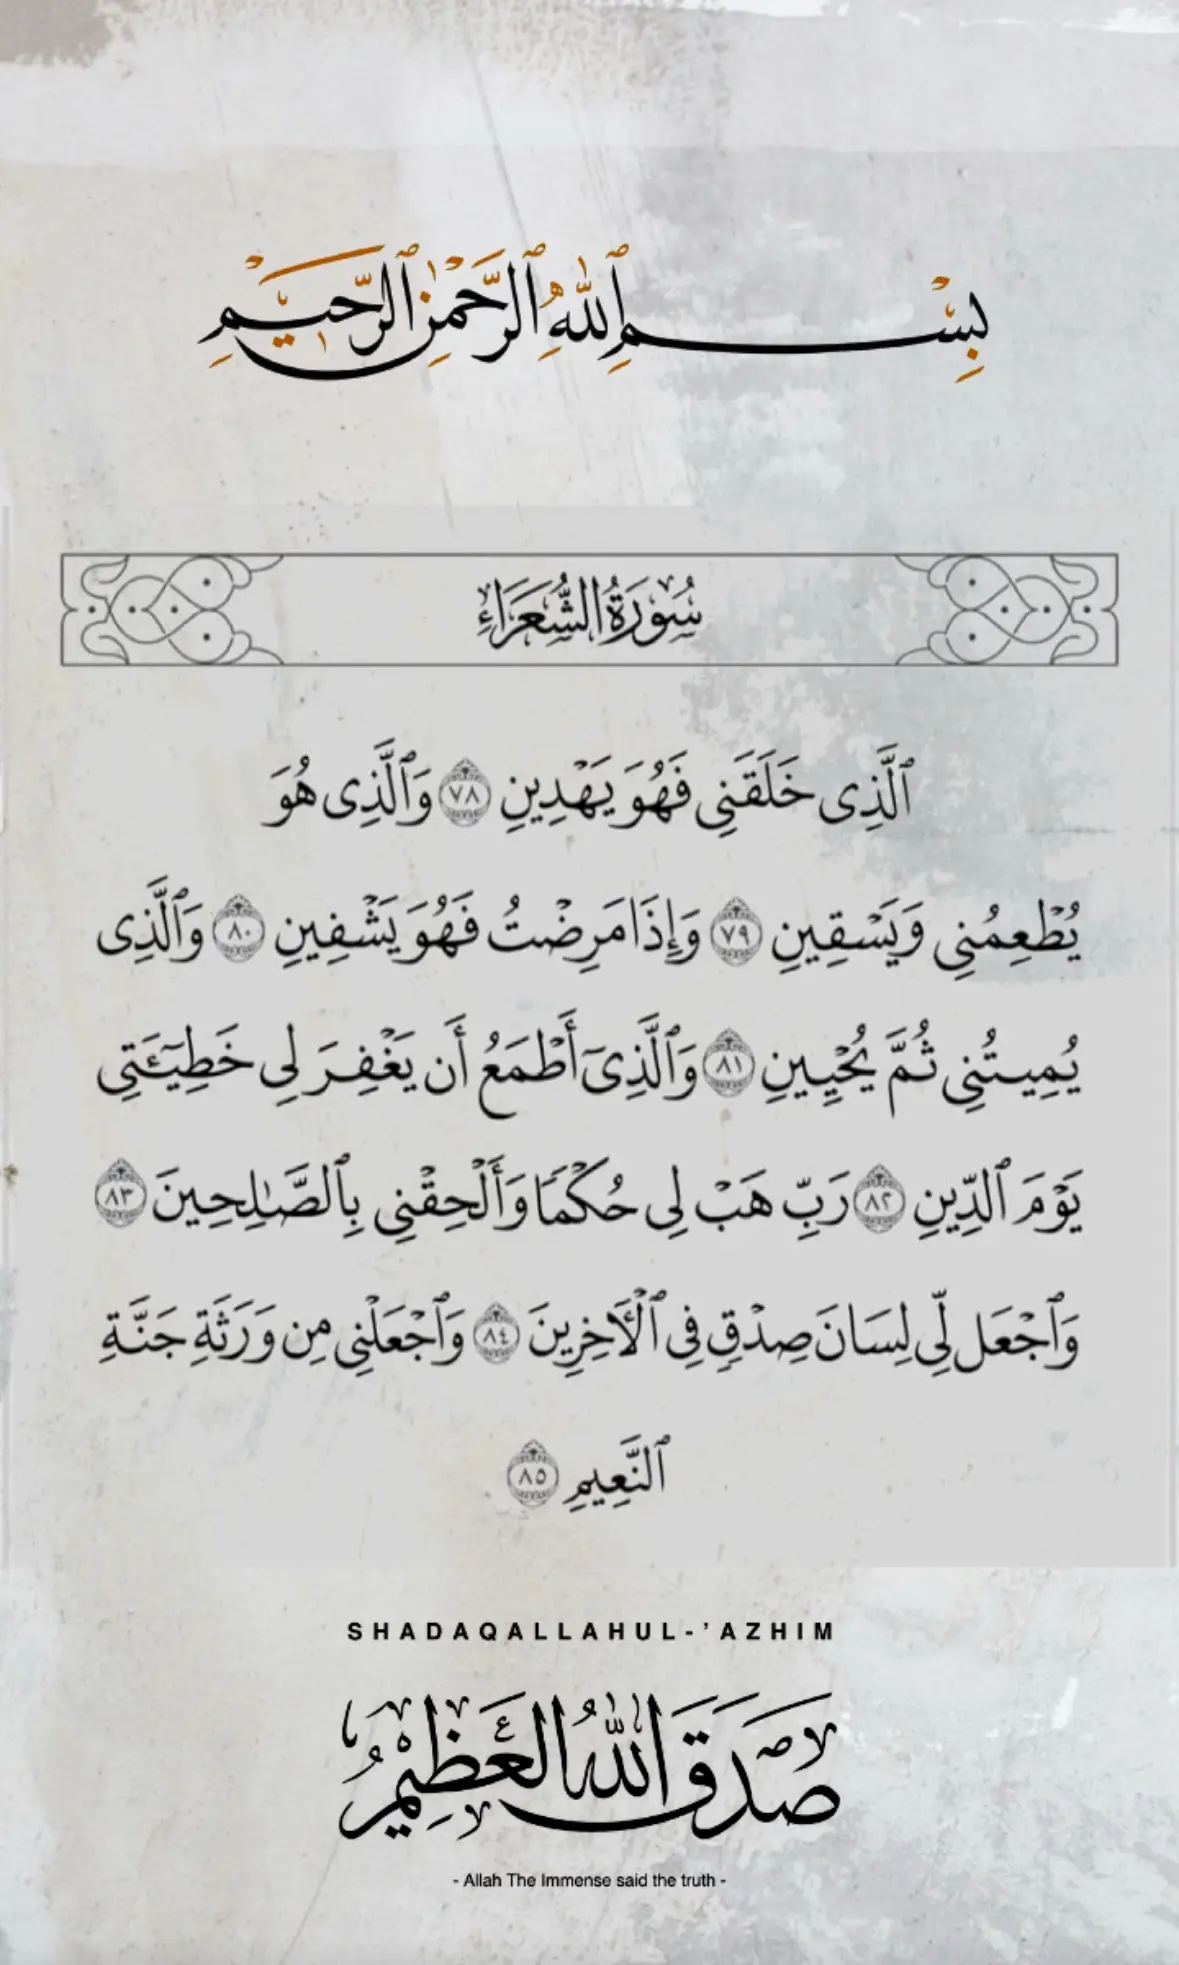 بِسْمِ ٱللَّهِ ٱلرَّحْمَٰنِ ٱلرَّحِيمِ
سُورَةُ الشُّعَرَاءِ
ٱلَّذِى خَلَقَنِى فَهُوَ يَهْدِينِ ٧٨ وَٱلَّذِى هُوَ
يُطْعِمُنِى وَيَسْقِينِ ٧٩ وَإِذَا مَرِضْتُ فَهُوَ يَشْفِينِ ٨٠ وَٱلَّذِى
يُمِيتُنِى ثُمَّ يُحْيِينِ ٨١ وَٱلَّذِىٓ أَطْمَعُ أَن يَغْفِرَ لِى خَطِيٓـَٔتِى
يَوْمَ ٱلدِّينِ ٨٢ رَبِّ هَبْ لِى حُكْمًا وَأَلْحِقْنِى بِٱلصَّـٰلِحِينَ ٨٣
وَٱجْعَل لِّى لِسَانَ صِدْقٍ فِى ٱلْـَٔاخِرِينَ ٨٤ وَٱجْعَلْنِى مِن وَرَثَةِ جَنَّةِ
ٱلنَّعِيمِ ٨٥
SHADAQALLAHUL-'AZHIM
صَدَقَ اللهُ العَظِيمُ
- Allah The Immense said the truth -